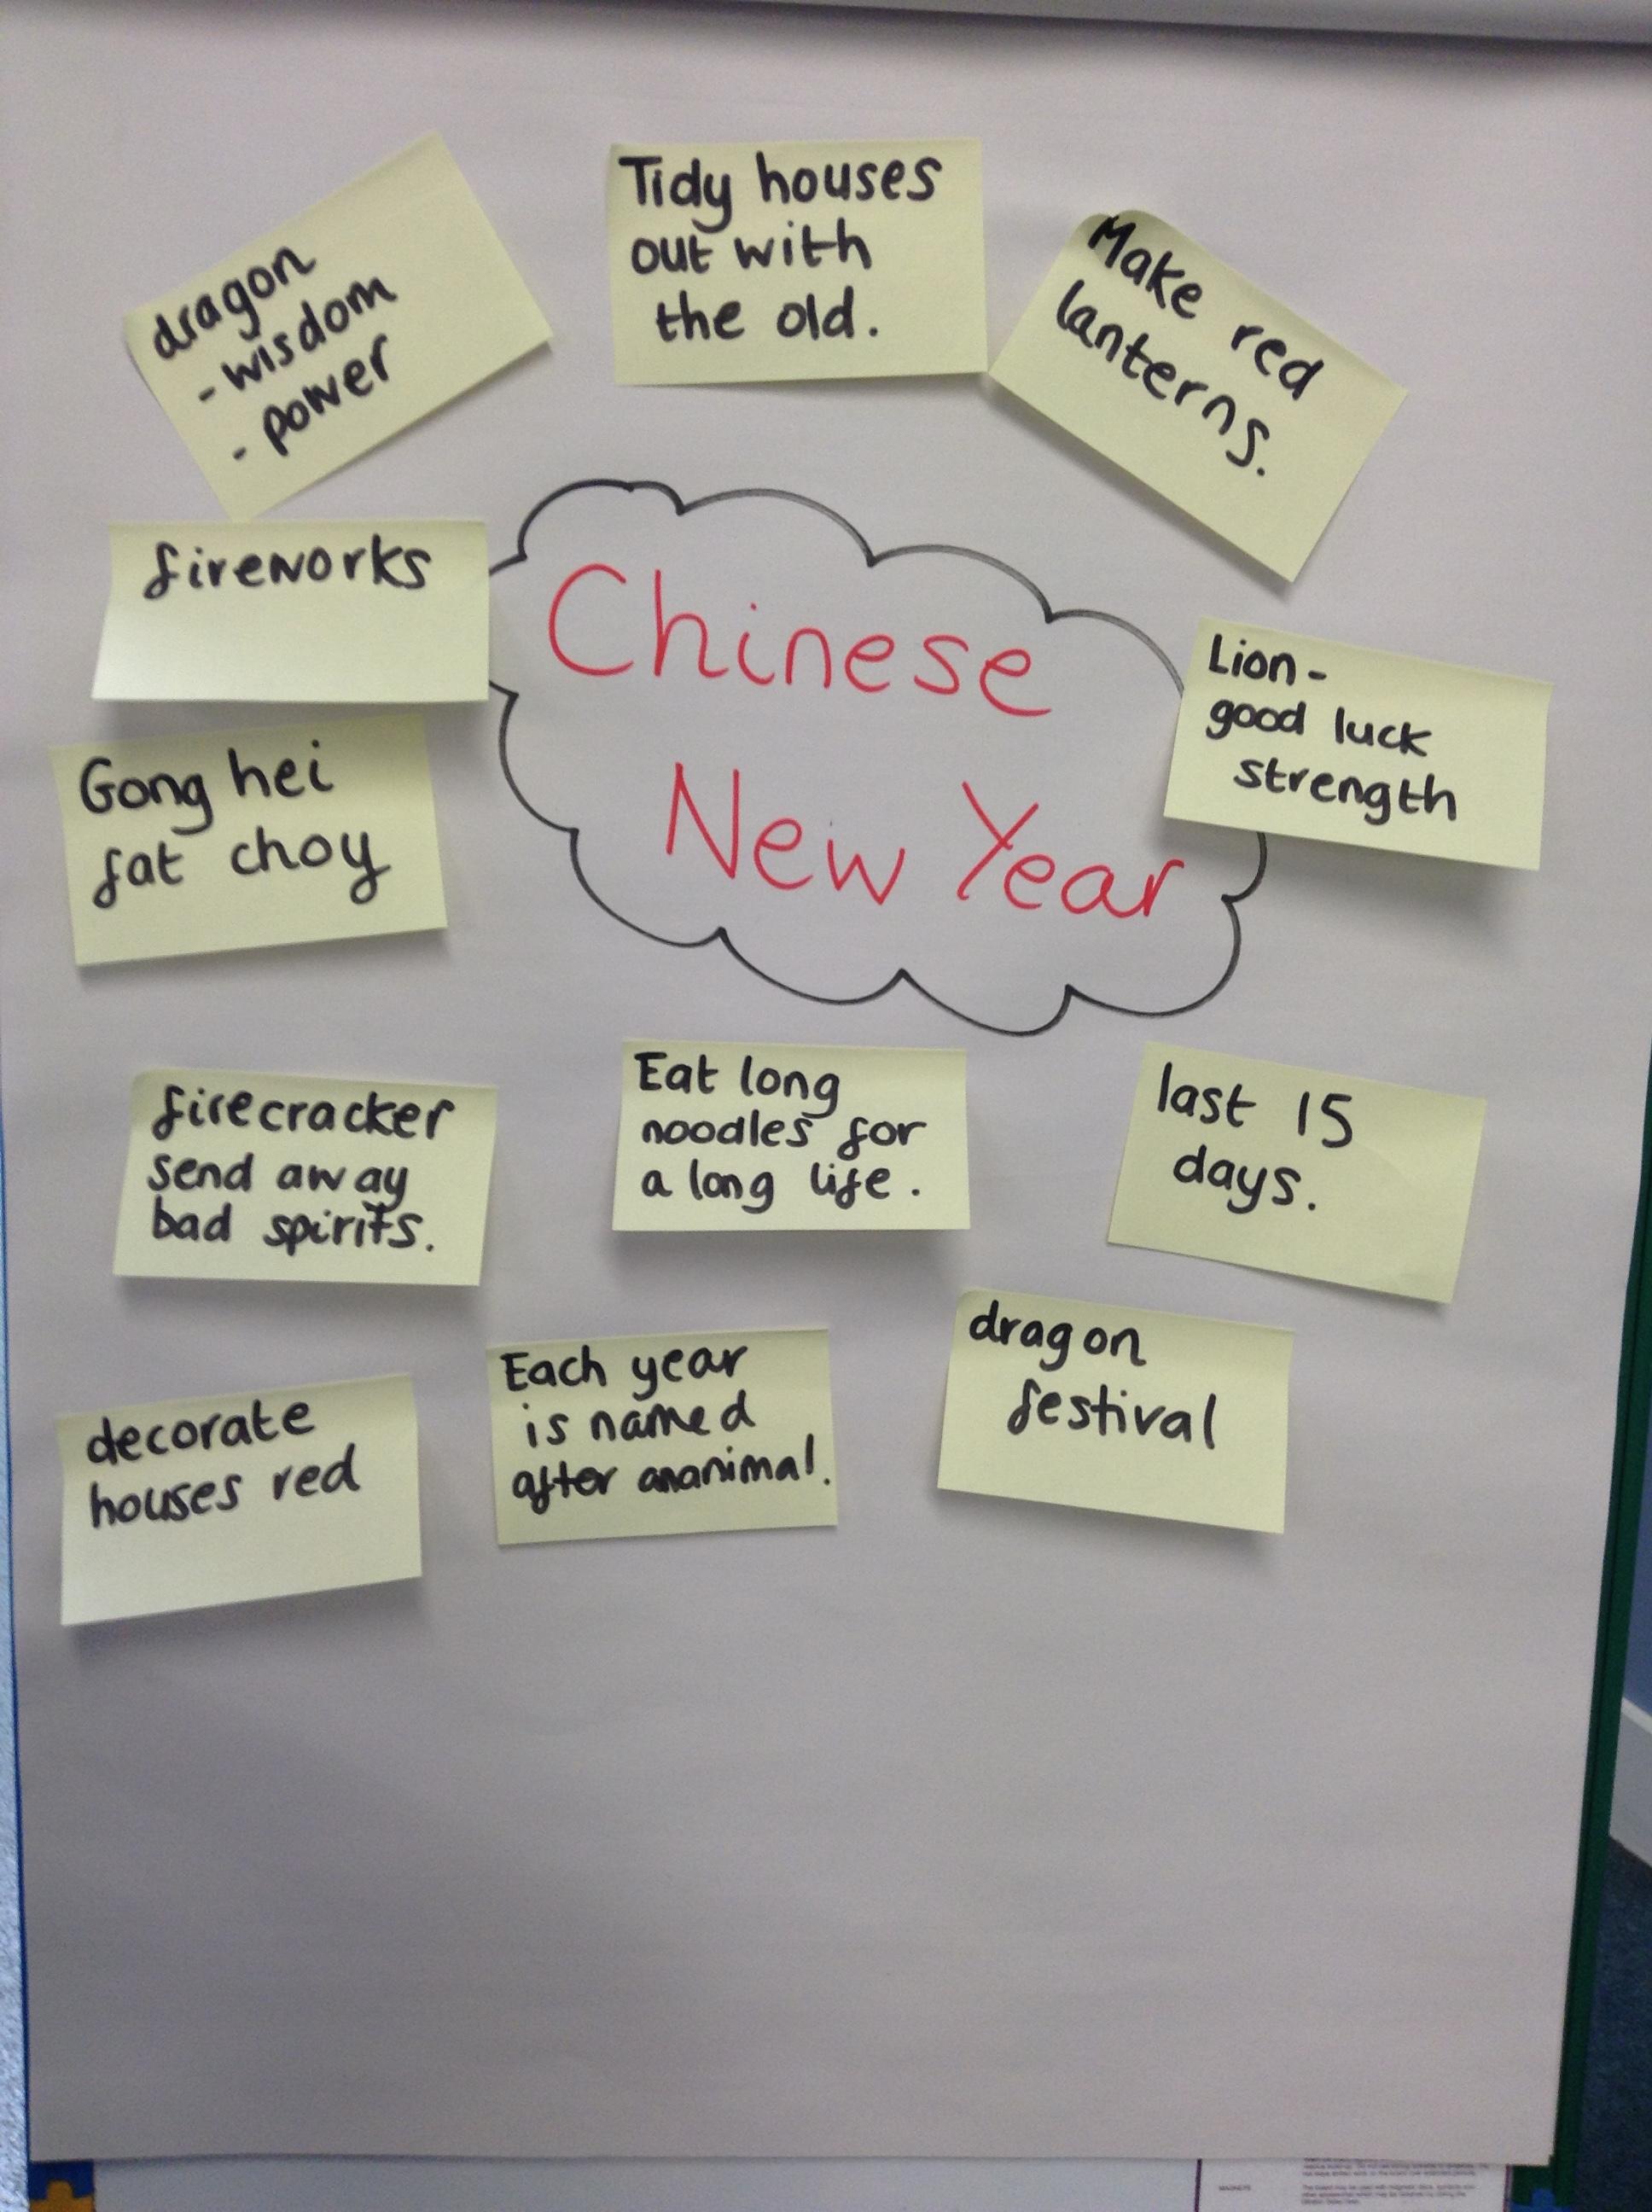 dragon
- wisdom
- power
Tidy houses
out with
the old.
Make red
lanterns.
fireworks
Chinese
New Year
Lion-
good luck
strength
Gong hei
fat choy
firecracker
send away
bad spirits.
Eat long
noodles for
a long life.
last 15
days.
decorate
houses red
Each year
is named
after ananimal.
dragon
festival